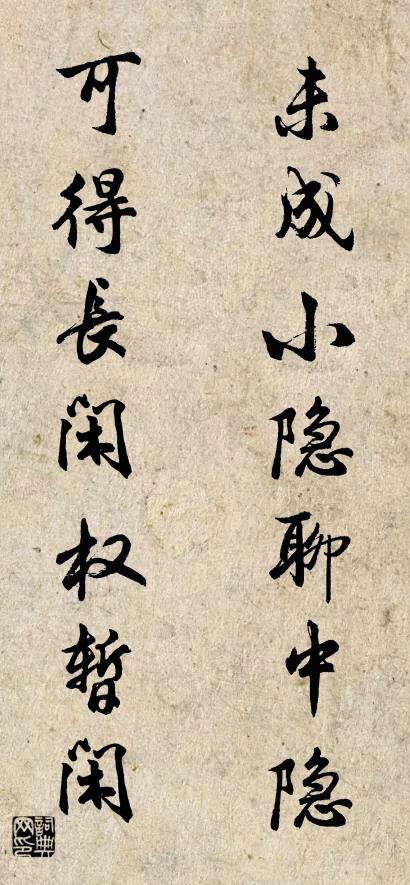 未成小隐聊中隐
可得長闲权暫闲
詞典网印